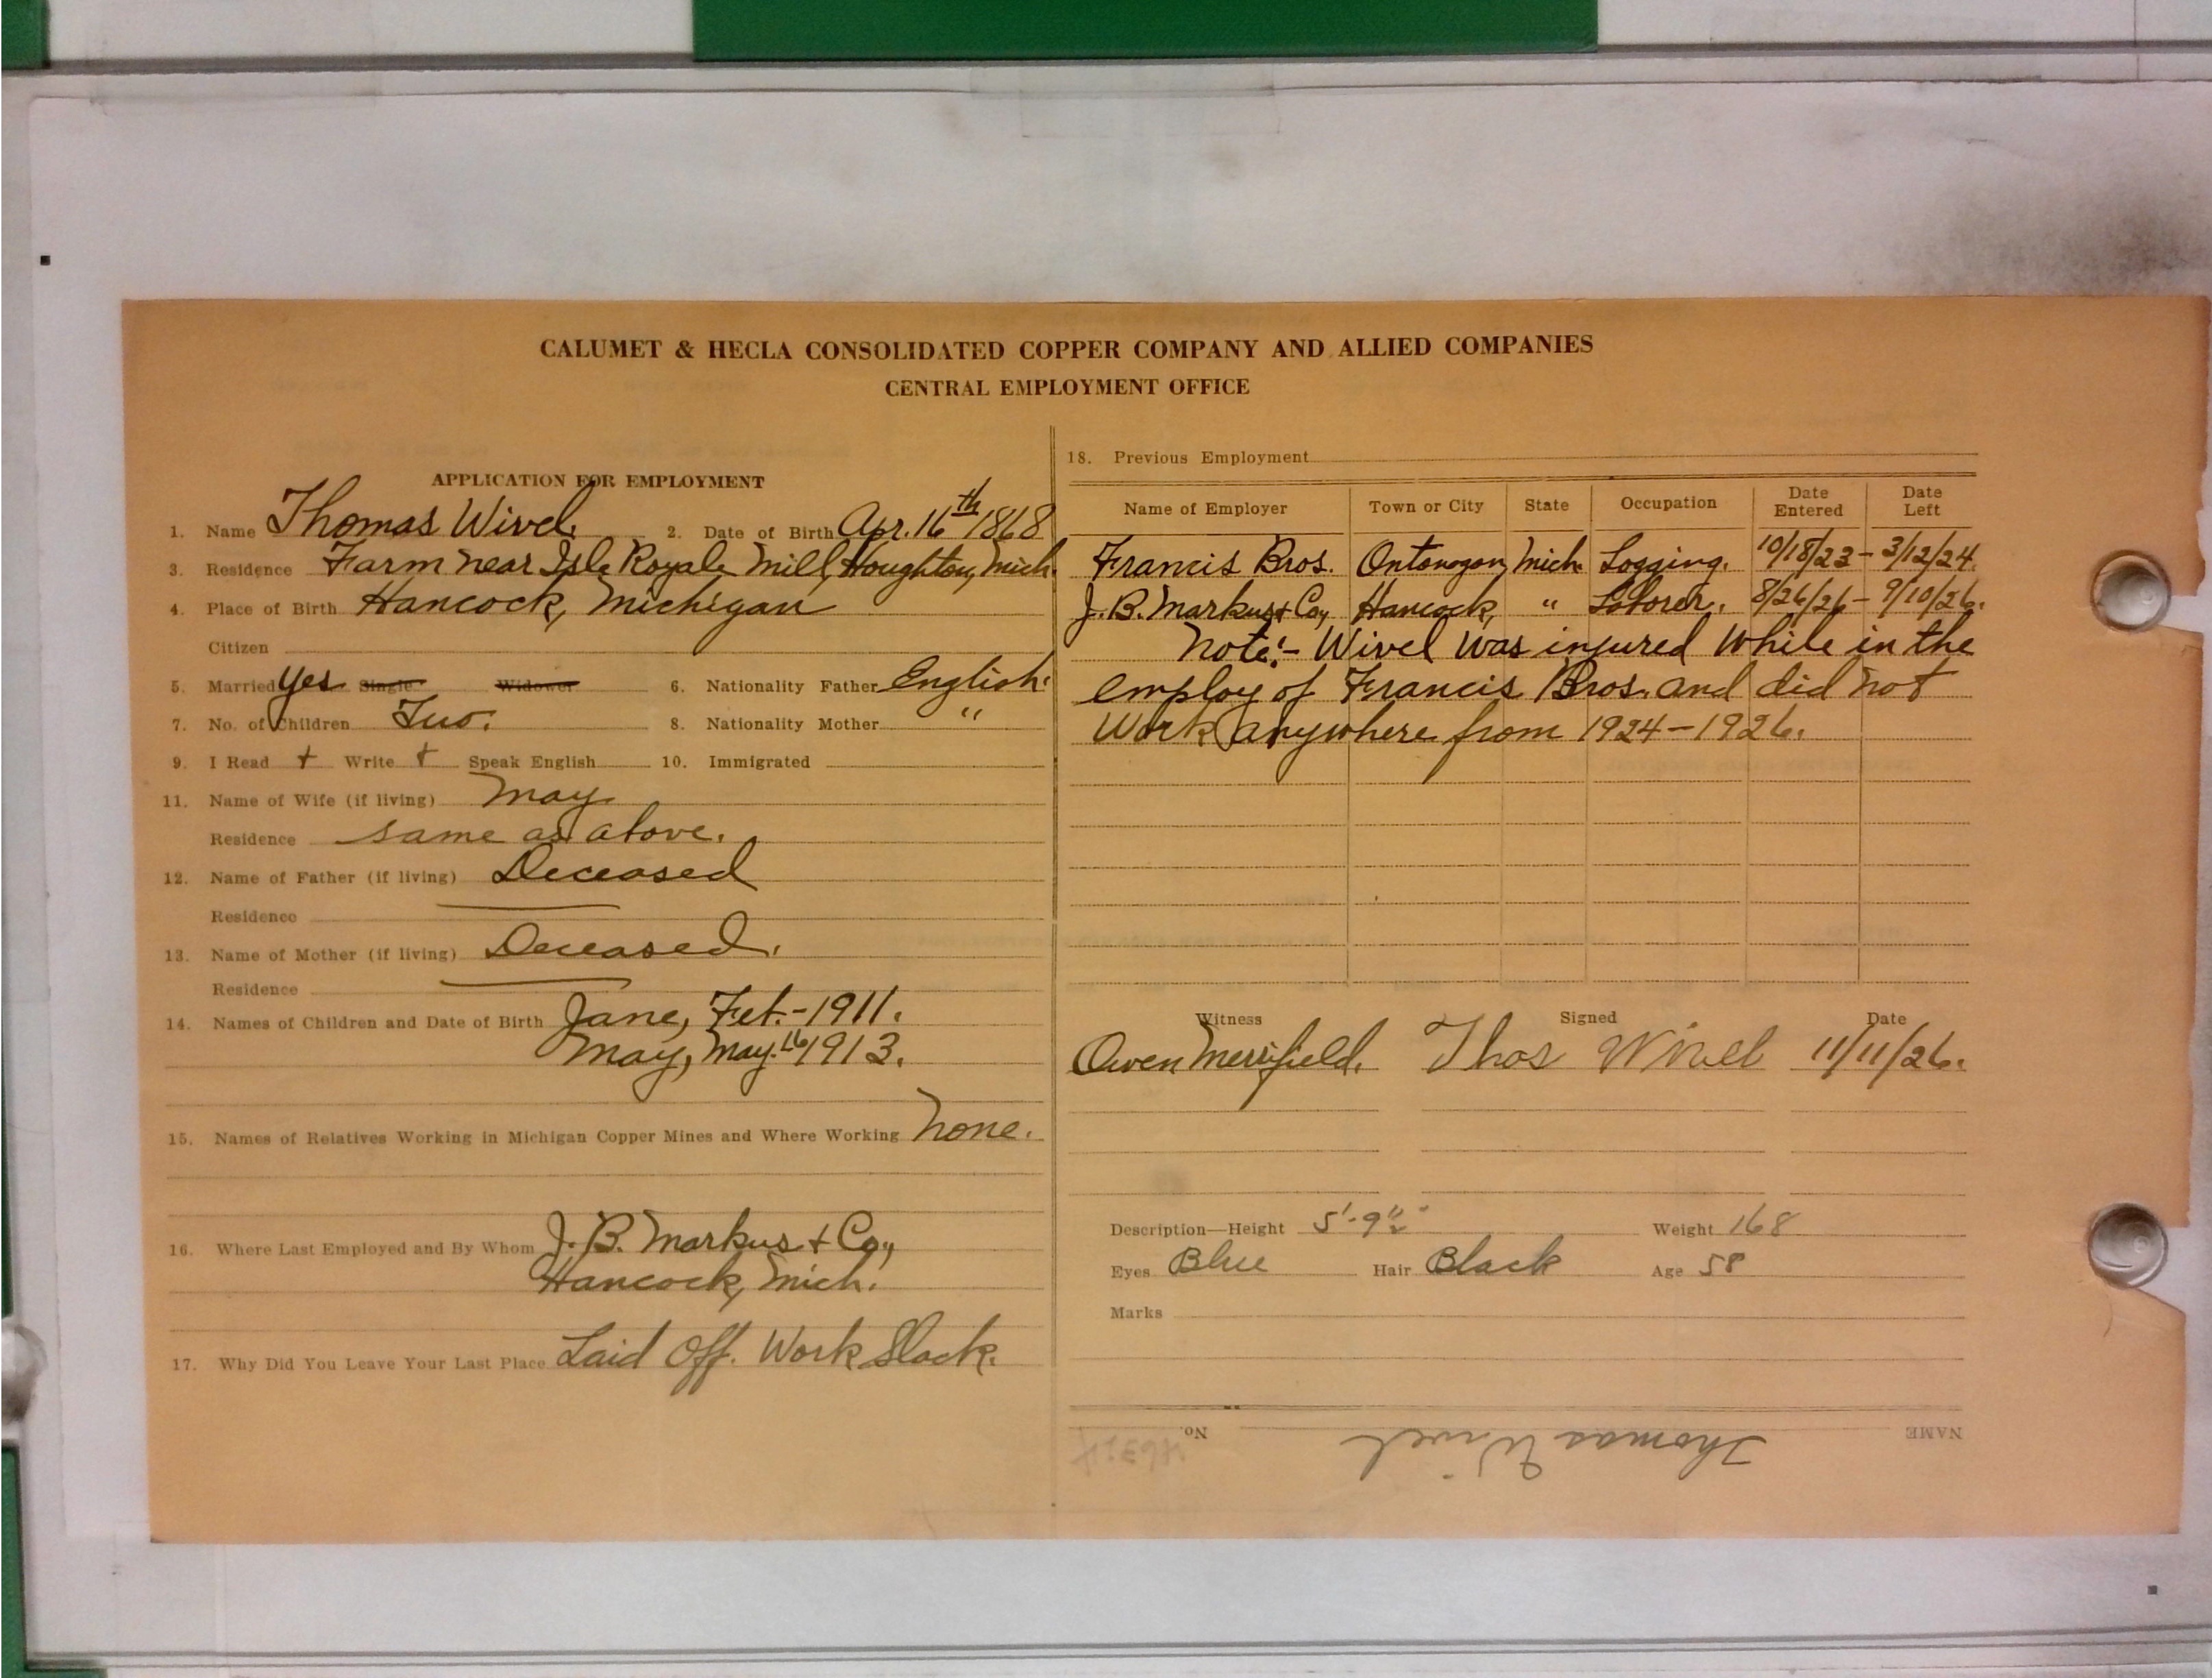 CALUMET & HECLA CONSOLIDATED COPPER COMPANY AND ALLIED COMPANIES
CENTRAL EMPLOYMENT OFFICE
APPLICATION FOR EMPLOYMENT
1. Name Thomas Wivel. 2. Date of Birth Apr. 16th 1868
3. Residence Farm near Isle Royale Mill, Houghton, Mich.
4. Place of Birth Hancock, Michigan
Citizen
5. Married Yes Single Widower 6. Nationality Father English.
7. No. of Children Two. 8. Nationality Mother "
9. I Read + Write + Speak English 10. Immigrated
11. Name of Wife (if living) May
Residence same as above.
12. Name of Father (if living) Deceased
Residence
13. Name of Mother (if living) Deceased.
Residence
14. Names of Children and Date of Birth Jane, Feb.-1911.
May, May. 16 1913.
15. Names of Relatives Working in Michigan Copper Mines and Where Working None.
16. Where Last Employed and By Whom J. B. Markus + Co.,
Hancock, Mich.
17. Why Did You Leave Your Last Place Laid Off. Work Slack.
18. Previous Employment
Name of Employer Town or City State Occupation Date Entered Date Left
Francis Bros. Ontonagon, Mich. Logging. 10/18/23 - 3/12/24.
J. B. Markus + Co., Hancock, " Laborer. 8/26/26 - 9/10/26.
Note:- Wivel was injured while in the
employ of Francis Bros. and did not
work anywhere from 1924-1926.
Witness Signed Date
Owen Merrifield. Thos Wivel 11/11/26.
Description—Height 5'-9½" Weight 168
Eyes Blue Hair Black Age 58
Marks
NAME Thomas Wivel No.